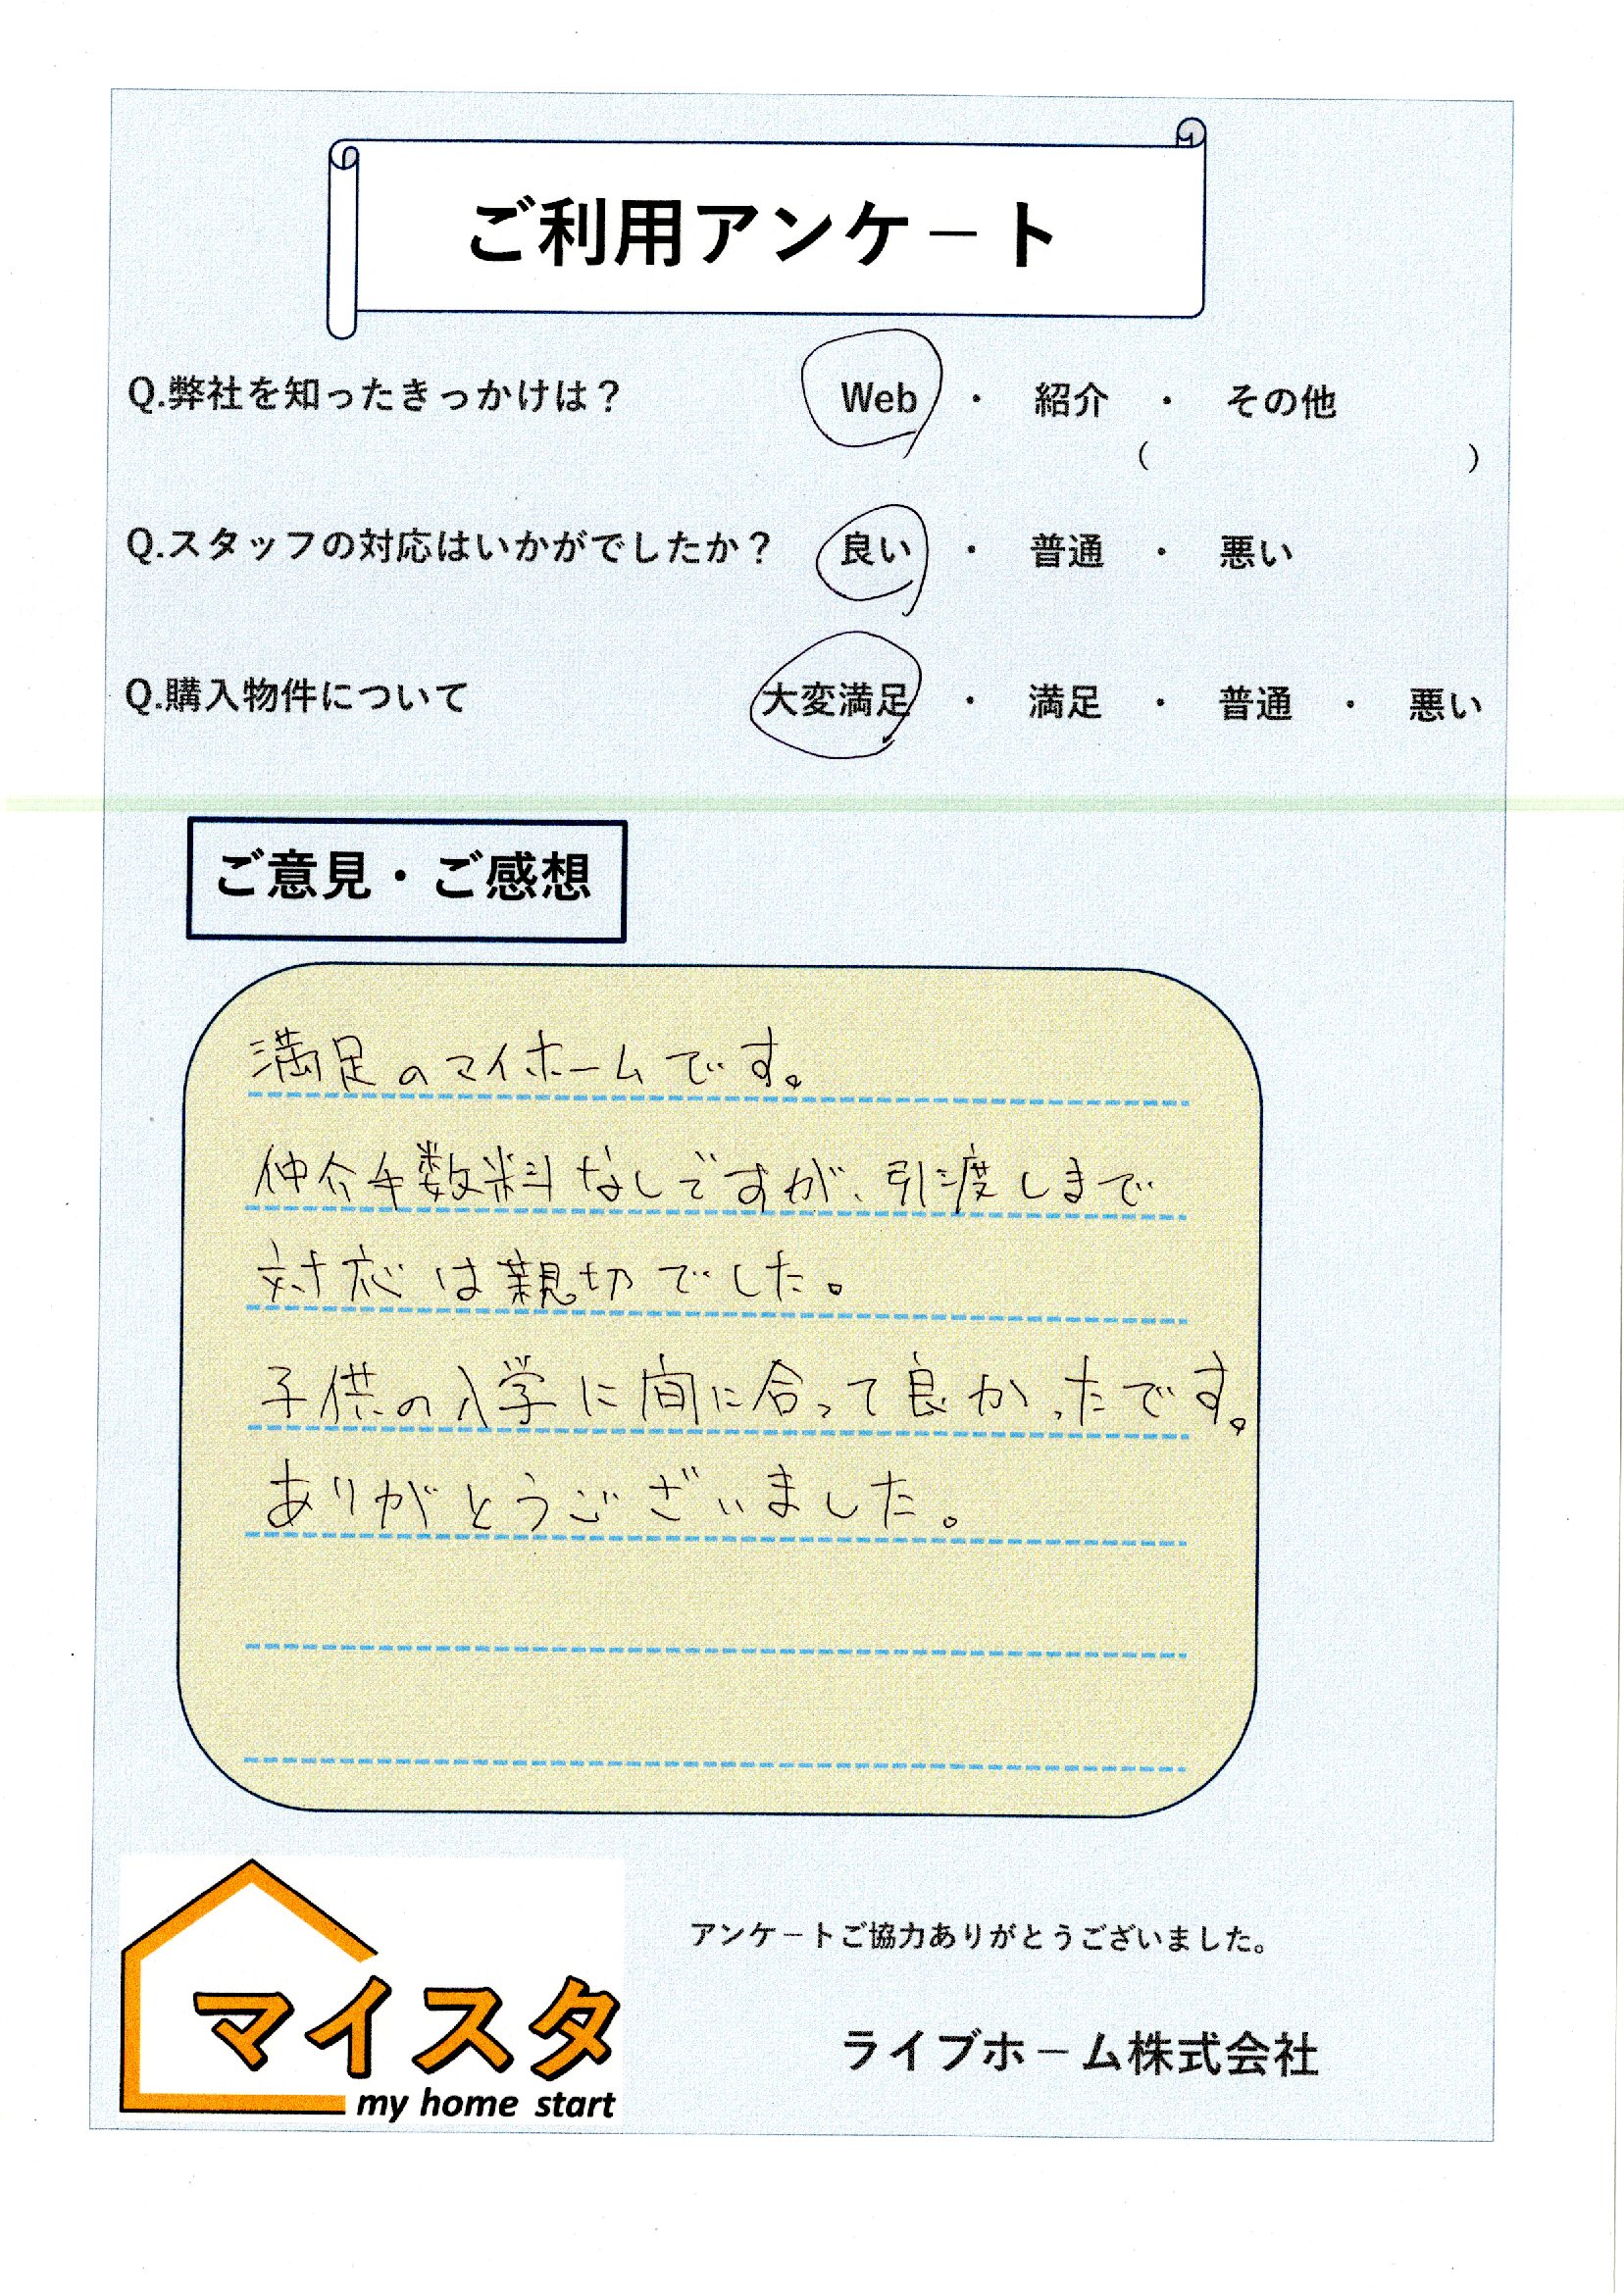 ご利用アンケ－ト
Q.弊社を知ったきっかけは？ Web ・ 紹介 ・ その他
（ ）
Q.スタッフの対応はいかがでしたか？ 良い ・ 普通 ・ 悪い
Q.購入物件について 大変満足 ・ 満足 ・ 普通 ・ 悪い
ご意見・ご感想
満足のマイホームです。
仲介手数料なしですが、引渡しまで
対応は親切でした。
子供の入学に間に合って良かったです。
ありがとうございました。
アンケ－トご協力ありがとうございました。
マイスタ
my home start
ライブホ－ム株式会社